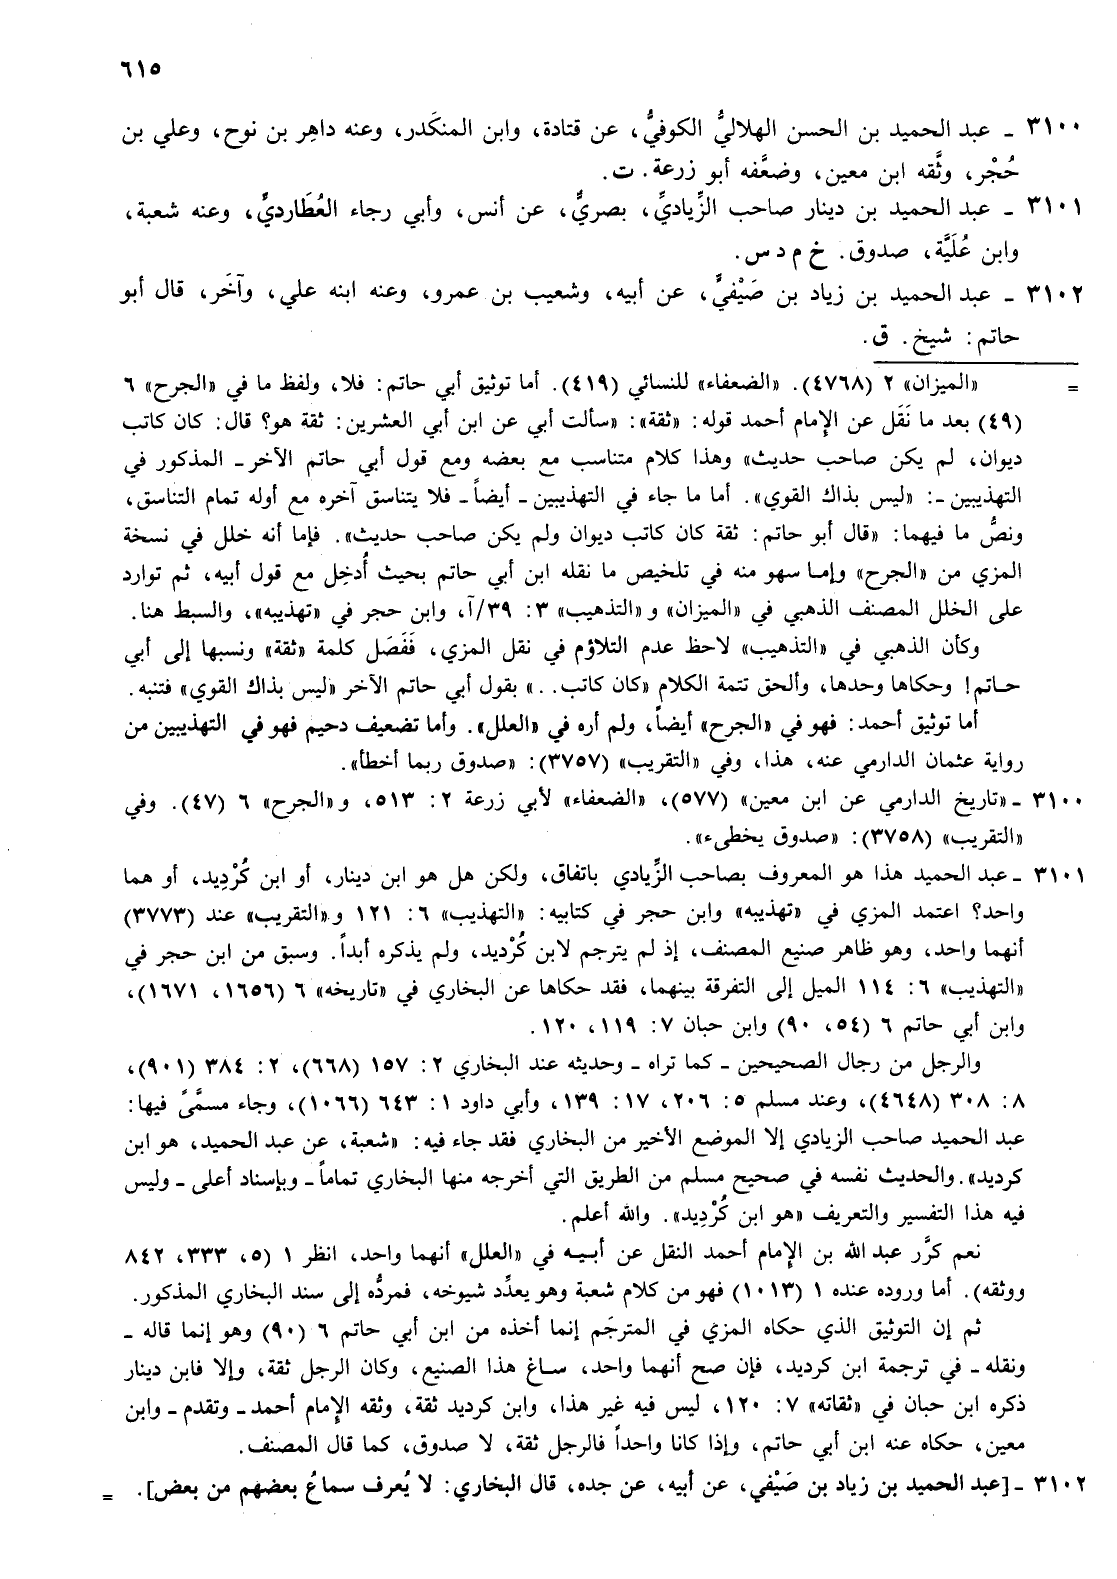 ٦١٥
٣١٠٠ ـ عبد الحميد بن الحسن الهلاليُّ الكوفيُّ، عن قتادة، وابن المنكَدر، وعنه داهِر بن نوح، وعلي بن
حُجْر، وثَّقه ابن معين، وضعَّفه أبو زرعة. ت.
٣١٠١ ـ عبد الحميد بن دينار صاحب الزِّياديِّ، بصريٌّ، عن أنس، وأبي رجاء العُطَارديِّ، وعنه شعبة،
وابن عُلَيَّة، صدوق. خ م د س.
٣١٠٢ ـ عبد الحميد بن زياد بن صَيْفيٍّ، عن أبيه، وشعيب بن عمرو، وعنه ابنه علي، وآخَر، قال أبو
حاتم: شيخ. ق.
= «الميزان» ٢ (٤٧٦٨). «الضعفاء» للنسائي (٤١٩). أما توثيق أبي حاتم: فلا، ولفظ ما في «الجرح» ٦
(٤٩) بعد ما نَقَل عن الإمام أحمد قوله: «ثقة»: «سألت أبي عن ابن أبي العشرين: ثقة هو؟ قال: كان كاتب
ديوان، لم يكن صاحب حديث» وهذا كلام متناسب مع بعضه ومع قول أبي حاتم الآخر ـ المذكور في
التهذيبين ـ: «ليس بذاك القوي». أما ما جاء في التهذيبين ـ أيضاً ـ فلا يتناسق آخره مع أوله تمام التناسق،
ونصُّ ما فيهما: «قال أبو حاتم: ثقة كان كاتب ديوان ولم يكن صاحب حديث». فإما أنه خلل في نسخة
المزي من «الجرح» وإما سهو منه في تلخيص ما نقله ابن أبي حاتم بحيث أُدخِل مع قول أبيه، ثم توارد
على الخلل المصنف الذهبي في «الميزان» و«التذهيب» ٣: ٣٩/آ، وابن حجر في «تهذيبه»، والسبط هنا.
وكأن الذهبي في «التذهيب» لاحظ عدم التلاؤم في نقل المزي، فَفَصَل كلمة «ثقة» ونسبها إلى أبي
حاتم! وحكاها وحدها، وألحق تتمة الكلام «كان كاتب..» بقول أبي حاتم الآخر «ليس بذاك القوي» فتنبه.
أما توثيق أحمد: فهو في «الجرح» أيضاً، ولم أره في «العلل». وأما تضعيف دحيم فهو في التهذيبين من
رواية عثمان الدارمي عنه، هذا، وفي «التقريب» (٣٧٥٧): «صدوق ربما أخطأ».
٣١٠٠ ـ «تاريخ الدارمي عن ابن معين» (٥٧٧)، «الضعفاء» لأبي زرعة ٢: ٥١٣، و«الجرح» ٦ (٤٧). وفي
«التقريب» (٣٧٥٨): «صدوق يخطىء».
٣١٠١ ـ عبد الحميد هذا هو المعروف بصاحب الزِّيادي باتفاق، ولكن هل هو ابن دينار، أو ابن كُرْدِيد، أو هما
واحد؟ اعتمد المزي في «تهذيبه» وابن حجر في كتابيه: «التهذيب» ٦: ١٢١ و«التقريب» عند (٣٧٧٣)
أنهما واحد، وهو ظاهر صنيع المصنف، إذ لم يترجم لابن كُرْديد، ولم يذكره أبداً. وسبق من ابن حجر في
«التهذيب» ٦: ١١٤ الميل إلى التفرقة بينهما، فقد حكاها عن البخاري في «تاريخه» ٦ (١٦٥٦، ١٦٧١)،
وابن أبي حاتم ٦ (٥٤، ٩٠) وابن حبان ٧: ١١٩، ١٢٠.
والرجل من رجال الصحيحين ـ كما تراه ـ وحديثه عند البخاري ٢: ١٥٧ (٦٦٨)، ٢: ٣٨٤ (٩٠١)،
٨: ٣٠٨ (٤٦٤٨)، وعند مسلم ٥: ٢٠٦، ١٧: ١٣٩، وأبي داود ١: ٦٤٣ (١٠٦٦)، وجاء مسمَّىً فيها:
عبد الحميد صاحب الزيادي إلا الموضع الأخير من البخاري فقد جاء فيه: «شعبة، عن عبد الحميد، هو ابن
كرديد». والحديث نفسه في صحيح مسلم من الطريق التي أخرجه منها البخاري تماماً ـ وبإسناد أعلى ـ وليس
فيه هذا التفسير والتعريف «هو ابن كُرْدِيد». والله أعلم.
نعم كرَّر عبد الله بن الإمام أحمد النقل عن أبيه في «العلل» أنهما واحد، انظر ١ (٥، ٣٣٣، ٨٤٢
ووثقه). أما وروده عنده ١ (١٠١٣) فهو من كلام شعبة وهو يعدِّد شيوخه، فمردُّه إلى سند البخاري المذكور.
ثم إن التوثيق الذي حكاه المزي في المترجَم إنما أخذه من ابن أبي حاتم ٦ (٩٠) وهو إنما قاله ـ
ونقله ـ في ترجمة ابن كرديد، فإن صح أنهما واحد، ساغ هذا الصنيع، وكان الرجل ثقة، وإلا فابن دينار
ذكره ابن حبان في «ثقاته» ٧: ١٢٠، ليس فيه غير هذا، وابن كرديد ثقة، وثقه الإمام أحمد ـ وتقدم ـ وابن
معين، حكاه عنه ابن أبي حاتم، وإذا كانا واحداً فالرجل ثقة، لا صدوق، كما قال المصنف.
٣١٠٢ ـ [عبد الحميد بن زياد بن صَيْفي، عن أبيه، عن جده، قال البخاري: لا يُعرف سماعُ بعضهم من بعض]. =